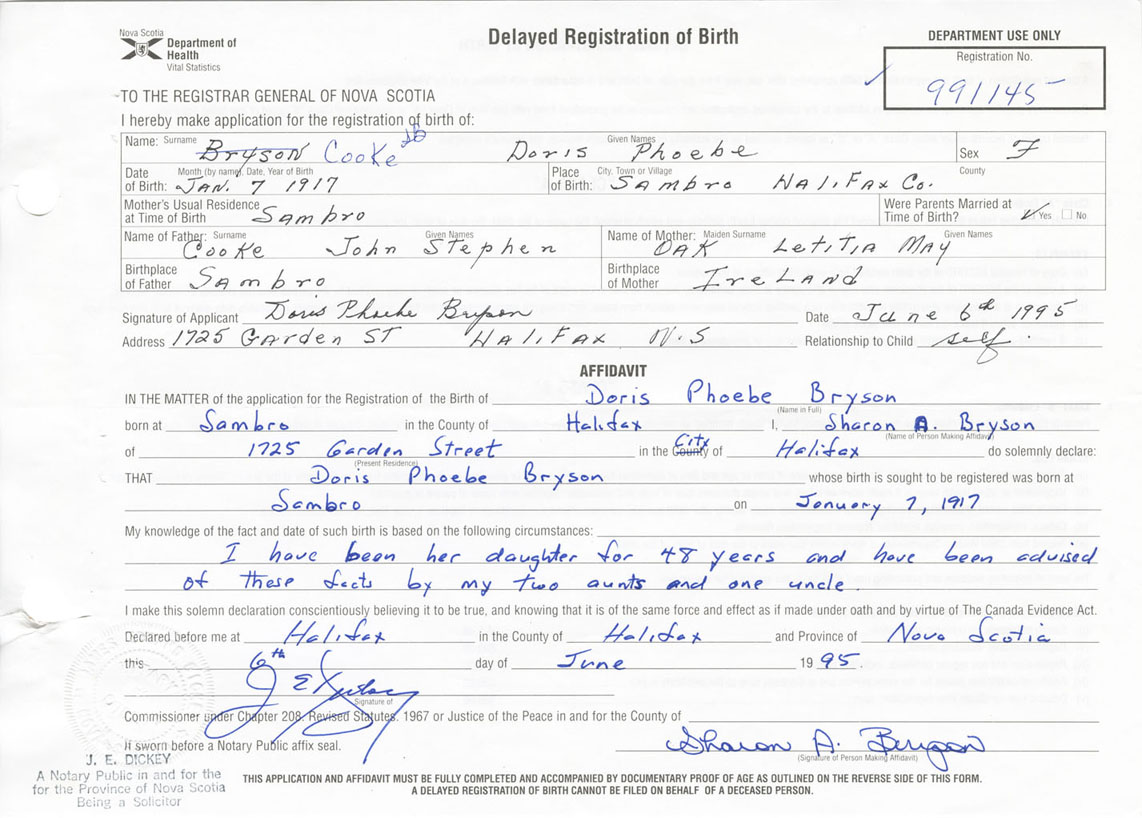 Nova Scotia
Department of
Health
Vital Statistics
Delayed Registration of Birth
DEPARTMENT USE ONLY
Registration No.
991145
TO THE REGISTRAR GENERAL OF NOVA SCOTIA
I hereby make application for the registration of birth of:
Name: Surname Bryson Cooke Given Names Doris Phoebe Sex F
Date of Birth: Month (by name), Date, Year of Birth JAN. 7 1917 Place of Birth: City, Town or Village Sambro County Halifax Co.
Mother's Usual Residence at Time of Birth Sambro Were Parents Married at Time of Birth? ✓ Yes ☐ No
Name of Father: Surname Cooke Given Names John Stephen Name of Mother: Maiden Surname OAK Given Names Letitia May
Birthplace of Father Sambro Birthplace of Mother Ireland
Signature of Applicant Doris Phoebe Bryson Date June 6th 1995
Address 1725 Garden ST Halifax N.S Relationship to Child self.
AFFIDAVIT
IN THE MATTER of the application for the Registration of the Birth of Doris Phoebe Bryson
(Name in Full)
born at Sambro in the County of Halifax I, Sharon A. Bryson
(Name of Person Making Affidavit)
of 1725 Garden Street in the County City of Halifax do solemnly declare:
(Present Residence)
THAT Doris Phoebe Bryson whose birth is sought to be registered was born at
Sambro on January 7, 1917
My knowledge of the fact and date of such birth is based on the following circumstances:
I have been her daughter for 48 years and have been advised
of these facts by my two aunts and one uncle.
I make this solemn declaration conscientiously believing it to be true, and knowing that it is of the same force and effect as if made under oath and by virtue of The Canada Evidence Act.
Declared before me at Halifax in the County of Halifax and Province of Nova Scotia
this 6th day of June 19 95.
Signature of
Commissioner under Chapter 208, Revised Statutes. 1967 or Justice of the Peace in and for the County of
Sharon A. Bryson
If sworn before a Notary Public affix seal.
(Signature of Person Making Affidavit)
J. E. DICKEY
A Notary Public in and for the
for the Province of Nova Scotia
Being a Solicitor
THIS APPLICATION AND AFFIDAVIT MUST BE FULLY COMPLETED AND ACCOMPANIED BY DOCUMENTARY PROOF OF AGE AS OUTLINED ON THE REVERSE SIDE OF THIS FORM.
A DELAYED REGISTRATION OF BIRTH CANNOT BE FILED ON BEHALF OF A DECEASED PERSON.